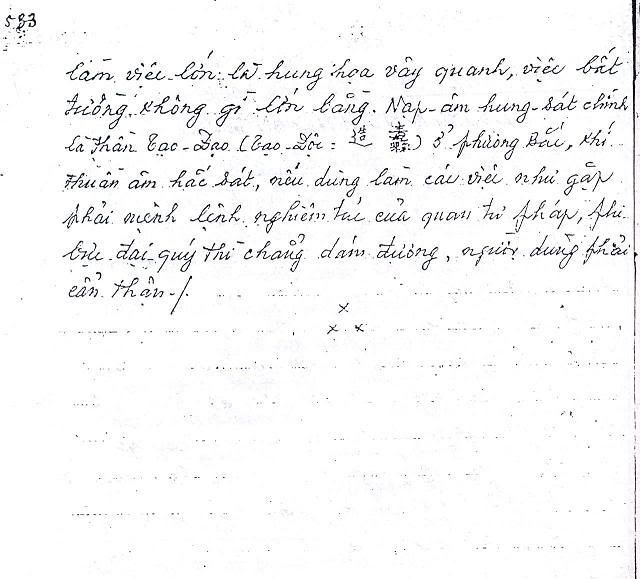 583
làm việc lớn là hung họa vây quanh, việc bất
tường không gì lớn bằng. Nạp-âm hung-sát chính
là thần Tạo-Đạo (Tạo-Độc: 造 纛) ở phương Bắc, khí
thuần âm hắc sát, nếu dùng làm các việc như gặp
phải mệnh lệnh nghiêm túc của quan tư pháp, phi
đại-quý thì chẳng dám đương, người dùng phải
cẩn thận-/.
x
x x